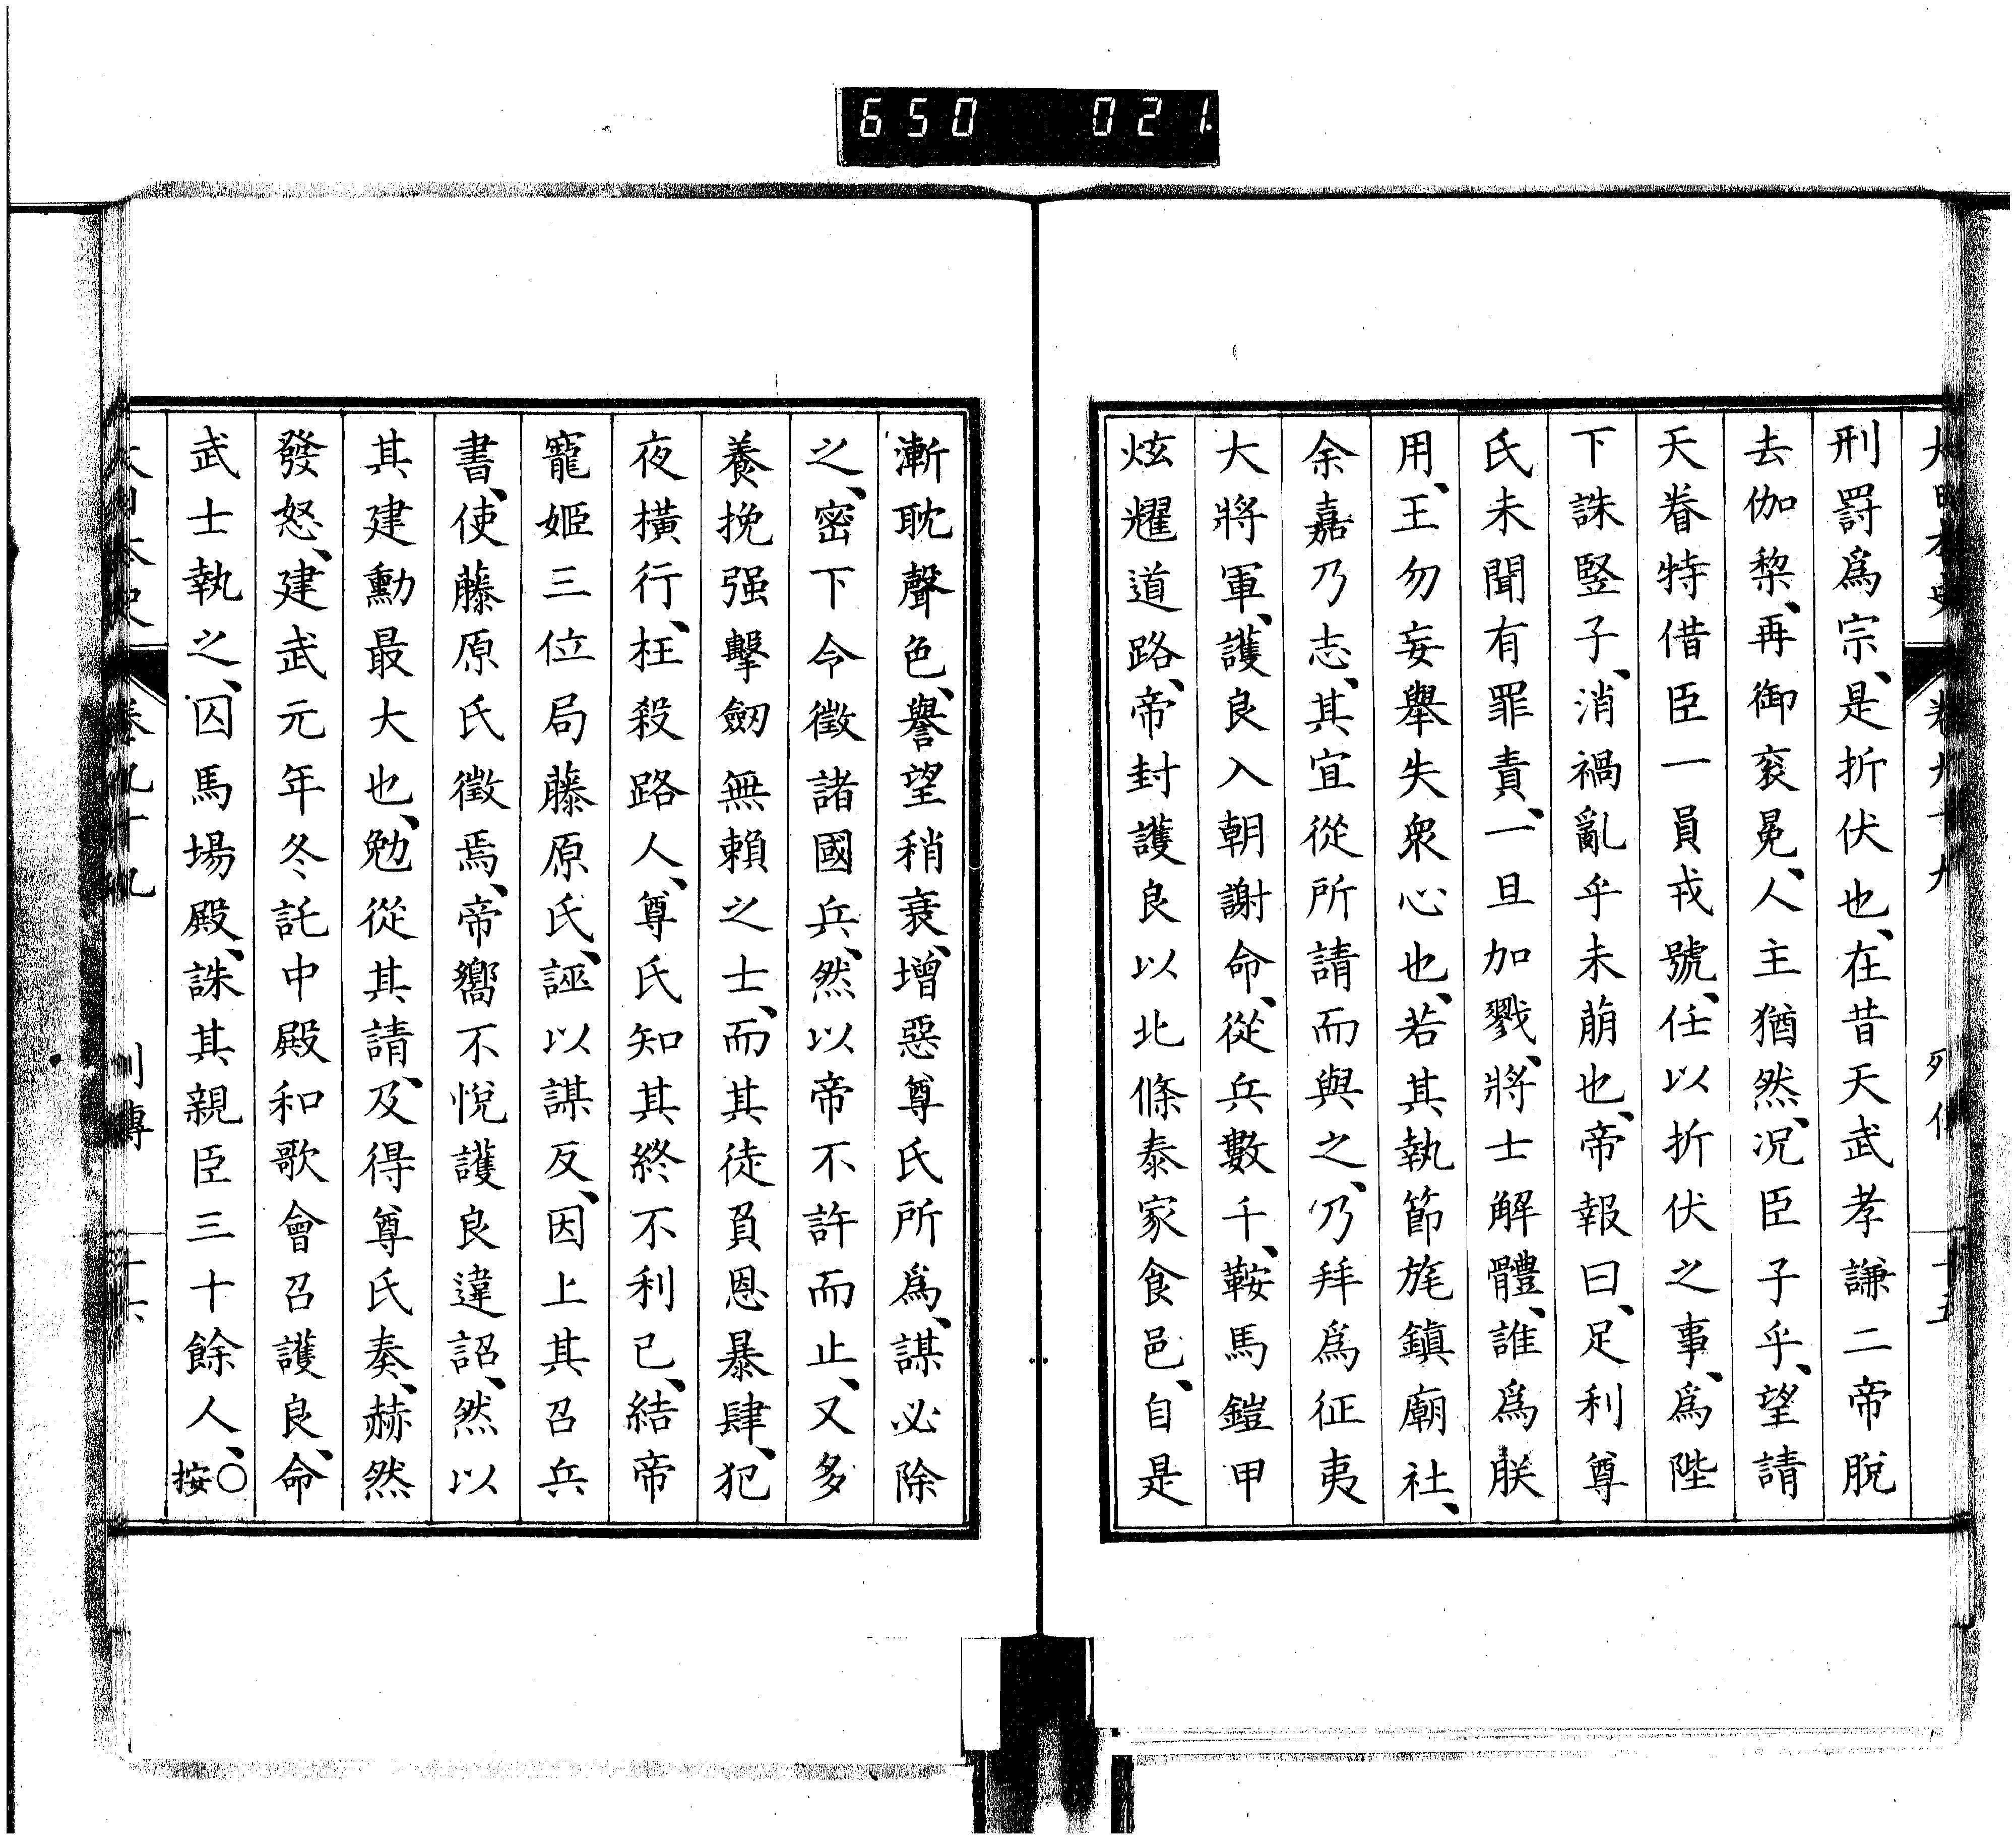 650 021
刑罸爲宗、是折伏也、在昔天武孝謙二帝脫
去伽黎、再御衮冕、人主猶然、况臣子乎、望請
天眷特借臣一員戎號、任以折伏之事、爲陛
下誅竪子、消禍亂乎未萠也、帝報曰、足利尊
氏未聞有罪責、一旦加戮、將士解體、誰爲朕
用、王勿妄舉失衆心也、若其執節旄鎮廟社、
余嘉乃志、其宜從所請而與之、乃拜爲征夷
大將軍、護良入朝謝命、從兵數千、鞍馬鎧甲
炫燿道路、帝封護良以北條泰家食邑、自是
漸耽聲色、譽望稍衰、增惡尊氏所爲、謀必除
之、密下令徵諸國兵、然以帝不許而止、又多
養挽强擊劒無賴之士、而其徒負恩暴肆、犯
夜橫行、枉殺路人、尊氏知其終不利已、結帝
寵姬三位局藤原氏、誣以謀反、因上其召兵
書、使藤原氏徵焉、帝嚮不悅護良違詔、然以
其建勳最大也、勉從其請、及得尊氏奏、赫然
發怒、建武元年冬託中殿和歌會召護良、命
武士執之、囚馬場殿、誅其親臣三十餘人、○按